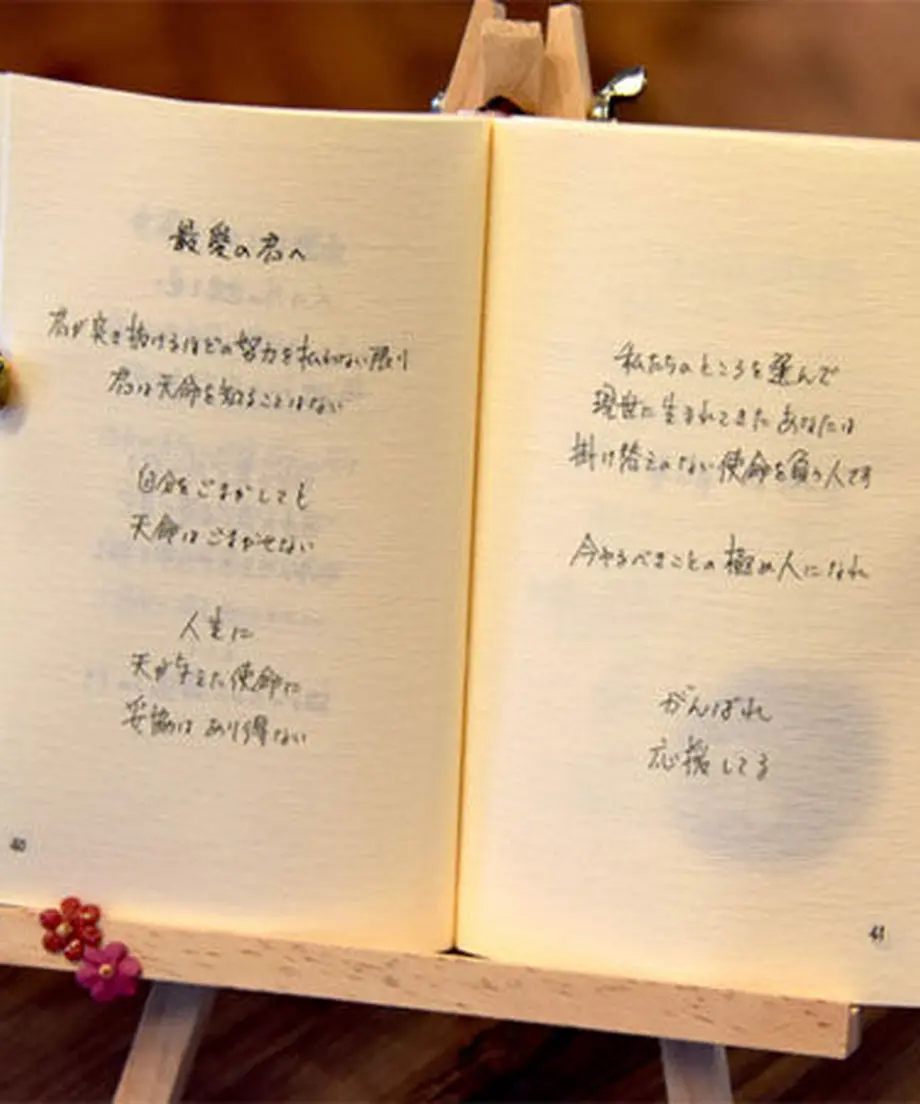 最愛の君へ
君が突き抜けるほどの努力を払わない限り
君は天命を知ることはない
自分をごまかしても
天命はごまかせない
人生に
天が与えた使命に
妥協はあり得ない
40
私たちのところを選んで
現世に生まれてきたあなたは
掛け替えのない使命を負う人です
今やるべきことの極め人になれ
がんばれ
応援してる
41